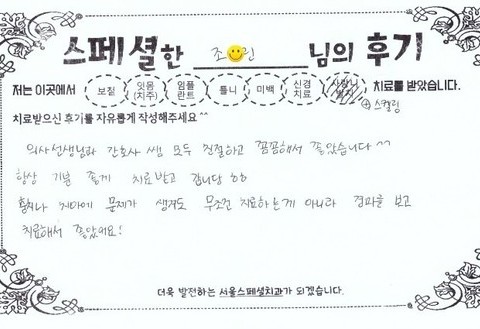 스페셜한 조 린 님의 후기
저는 이곳에서 보철 잇몸(치주) 임플란트 틀니 미백 신경치료 사랑니발치 치료를 받았습니다.
⊕ 스켈링
치료받으신 후기를 자유롭게 작성해주세요^^
의사선생님과 간호사 쌤 모두 친절하고 꼼꼼해서 좋았습니다^^
항상 기분 좋게 치료받고 갑니당 ㅎㅎ
충치나 치아에 문제가 생겨도 무조건 치료하는게 아니라 경과를 보고
치료해서 좋았어요!
더욱 발전하는 서울스페셜치과가 되겠습니다.